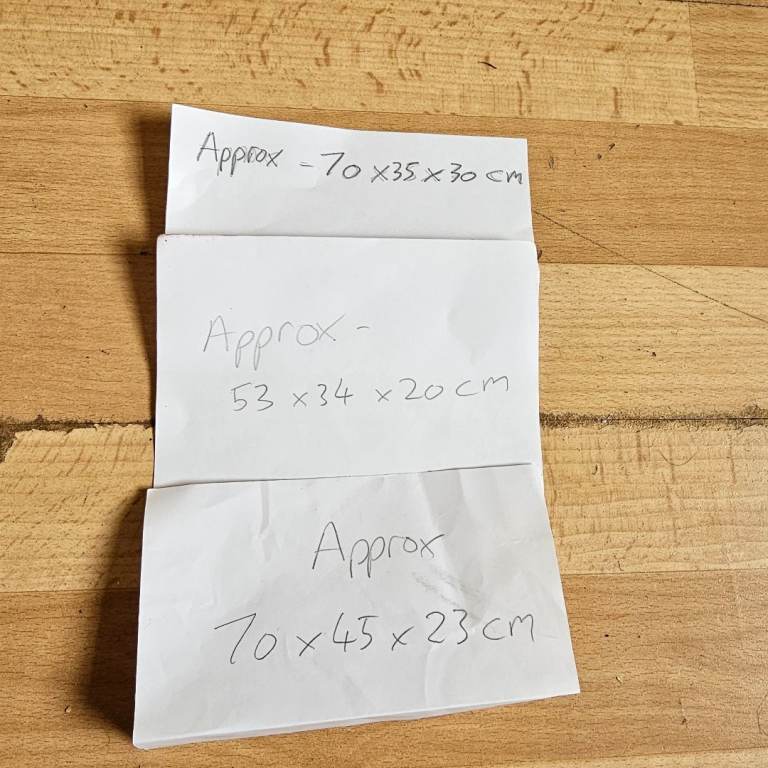 Approx - 70 x 35 x 30 cm
Approx -
53 x 34 x 20 cm
Approx
70 x 45 x 23 cm